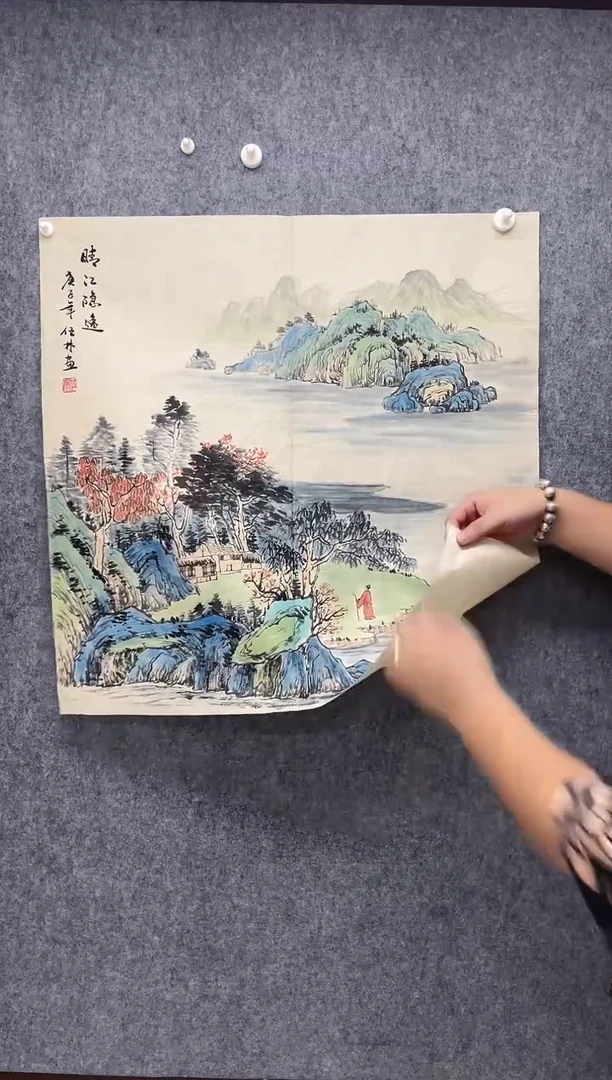 晴江隐逸
庚子年任朴画